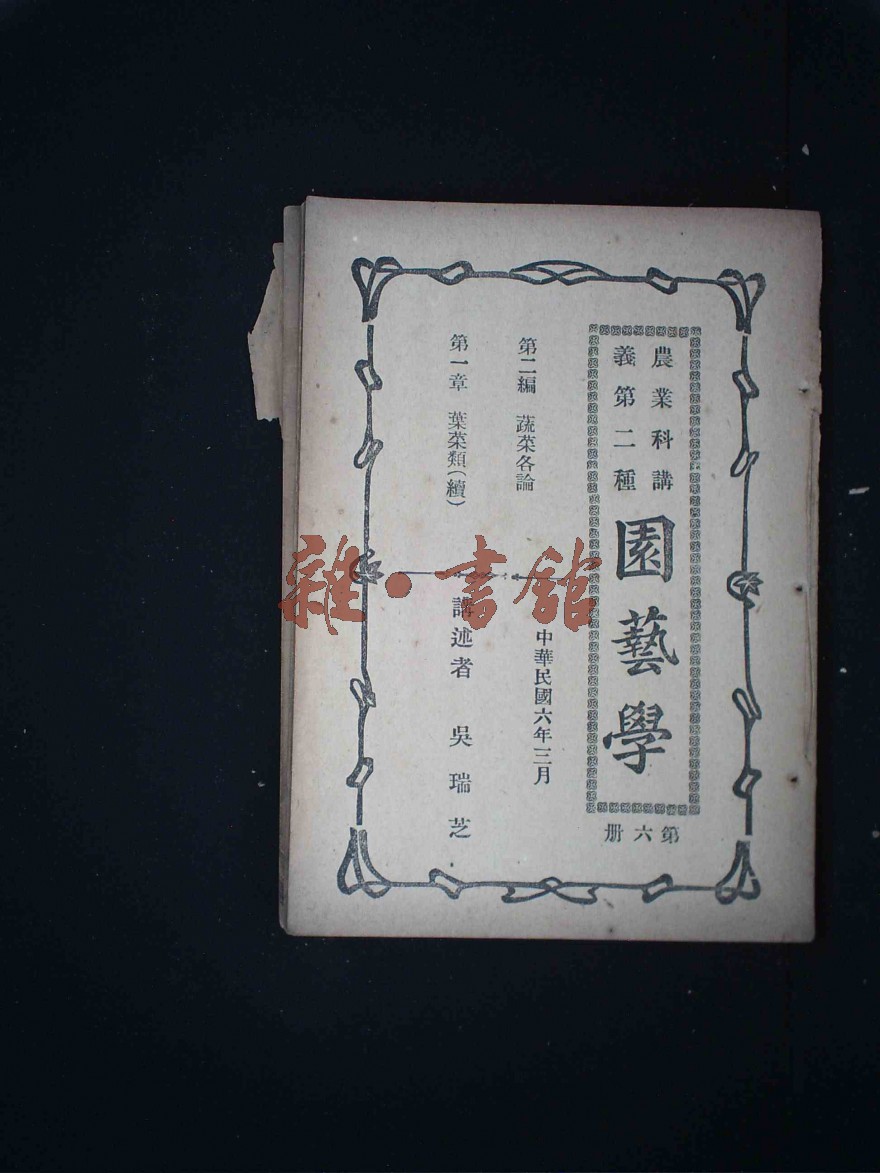 農業科講
義第二種
園藝學
第六册
第二編　蔬菜各論
中華民國六年三月
第一章　葉菜類（續）
講述者　吳瑞芝
雜·書館